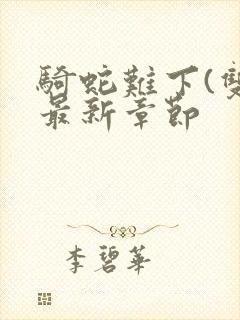 騎蛇難下(雙
最新章節
李碧華